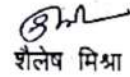 शैलेष मिश्रा